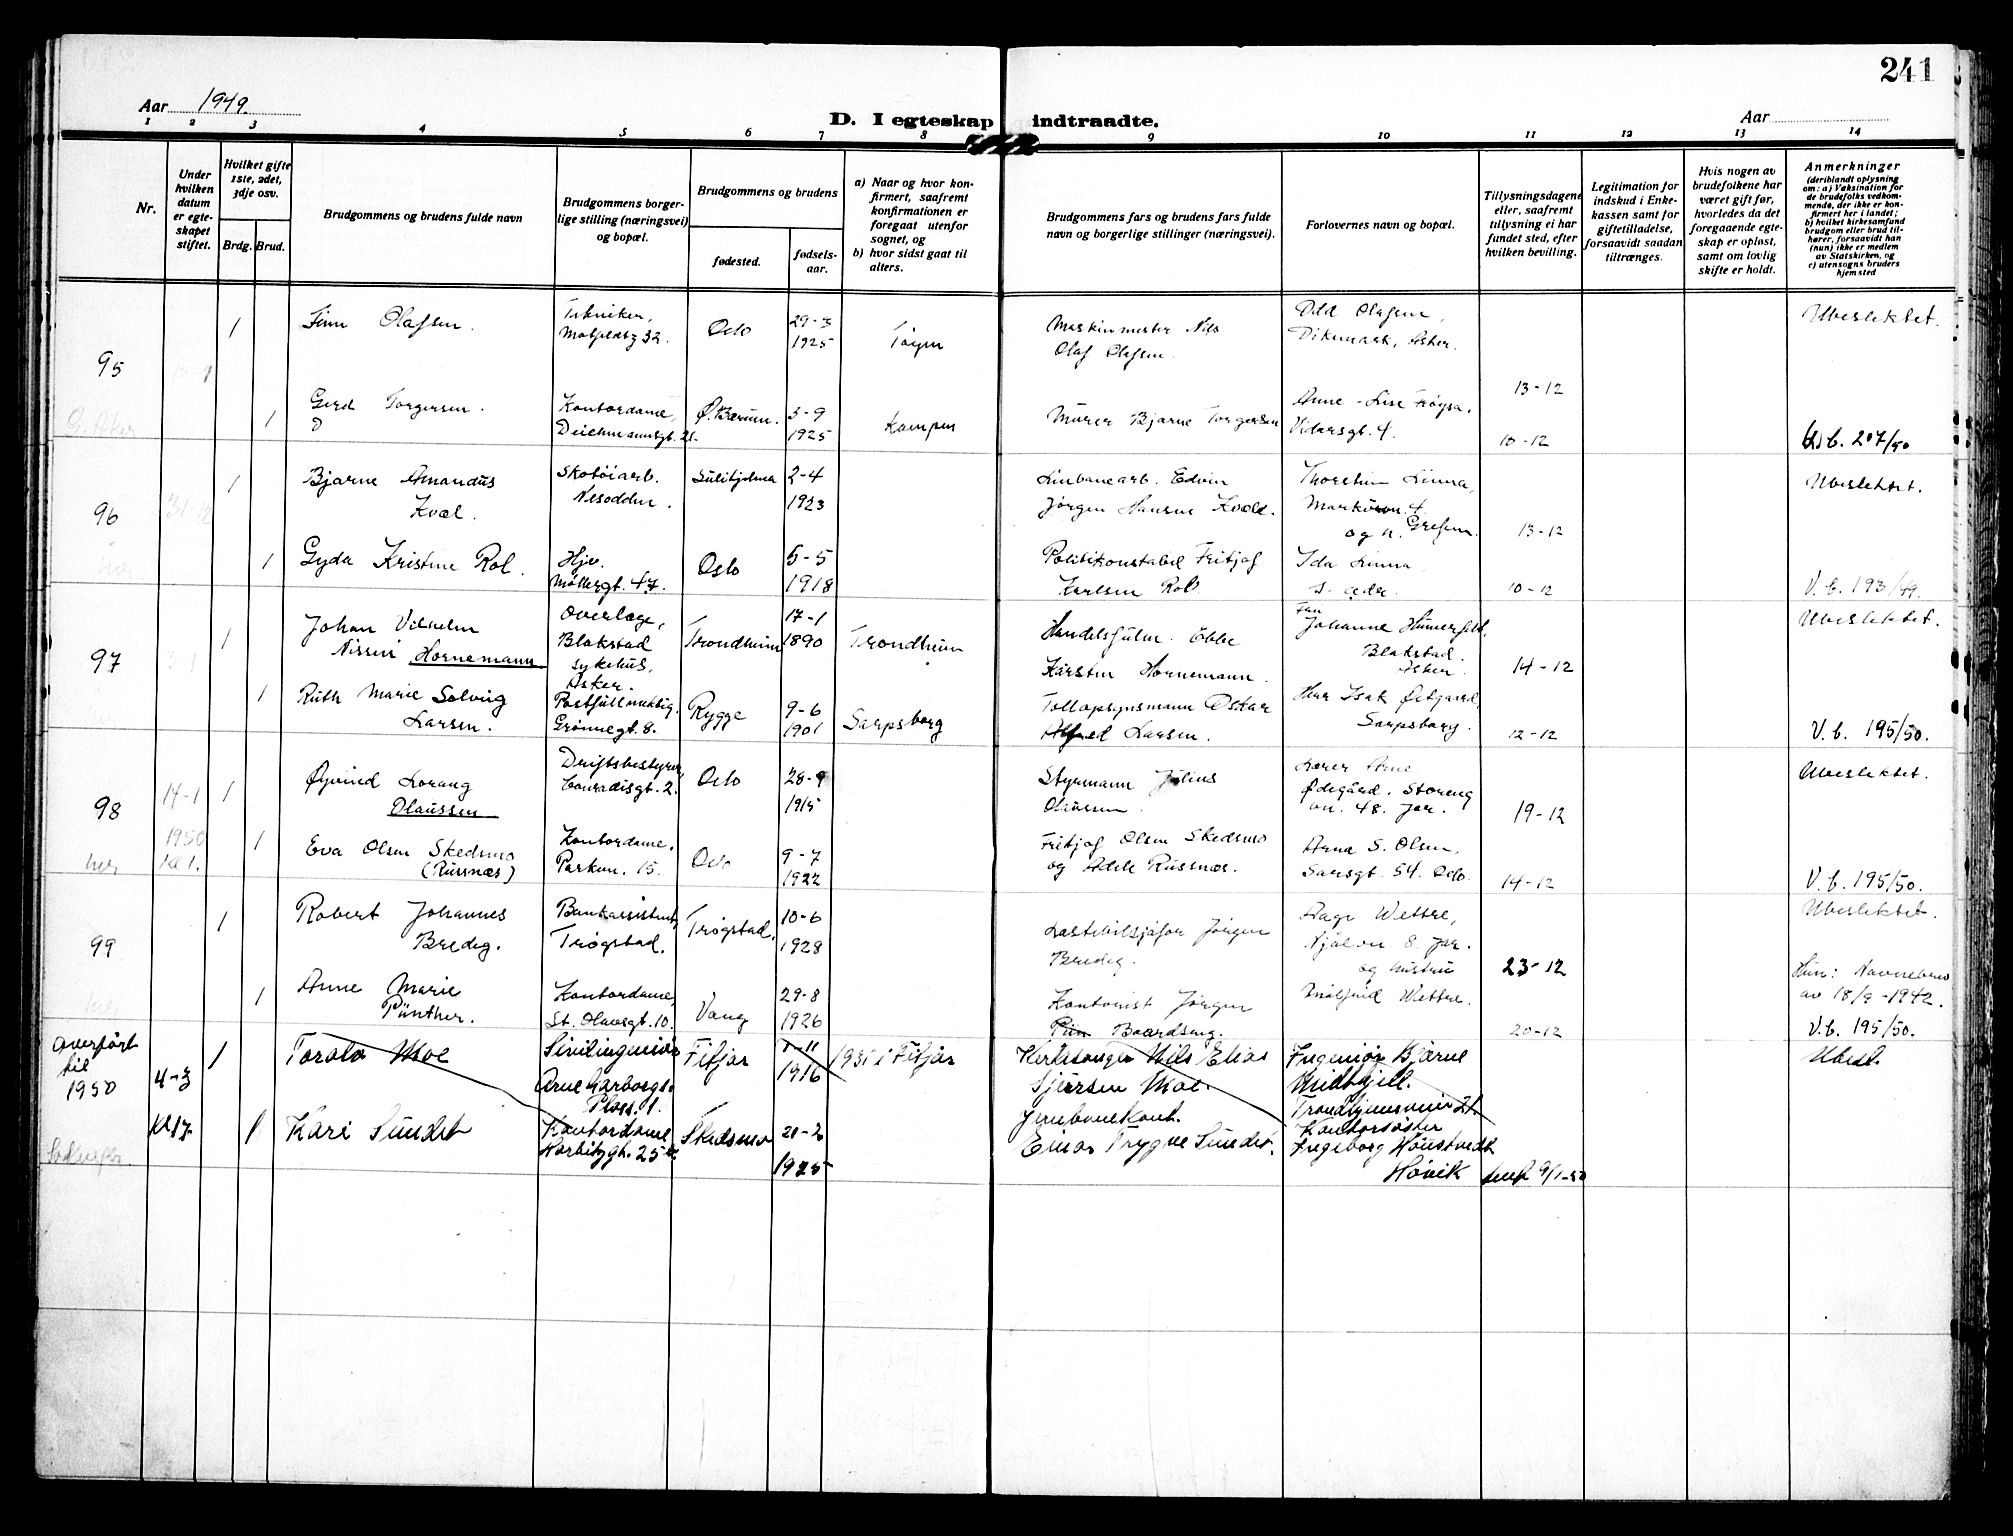 241
Aar 1949.
D. I egteskap indtraadte.
Aar
1 2 3 4 5 6 7 8 9 10 11 12 13 14
Nr.
Under hvilken datum er egteskapet stiftet.
Hvilket gifte 1ste, 2det, 3dje osv.
Brdg. Brud.
Brudgommens og brudens fulde navn
Brudgommens borgerlige stilling (næringsvei) og bopæl.
Brudgommens og brudens
fødested.
fødselsaar.
a) Naar og hvor konfirmert, saafremt konfirmationen er foregaat utenfor sognet, og
b) hvor sidst gaat til alters.
Brudgommens fars og brudens fars fulde navn og borgerlige stillinger (næringsvei).
Forlovernes navn og bopæl.
Tillysningsdagene eller, saafremt tillysning ei har fundet sted, efter hvilken bevilling.
Legitimation for indskud i Enkekassen samt for giftetilladelse, forsaavidt saadan tiltrænges.
Hvis nogen av brudefolkene har været gift før, hvorledes da det foregaaende egteskap er opløst, samt om lovlig skifte er holdt.
Anmerkninger
(deriblandt oplysning om: a) Vaksination for de brudefolks vedkommende, der ikke er konfirmert her i landet;
b) hvilket kirkesamfund brudgom eller brud tilhører, forsaavidt han (hun) ikke er medlem av Statskirken, og
c) utensogns bruders hjemsted
95
1
Finn Olafsen.
Tekniker,
32.
Oslo
29-3
1925
Tøyen
Maskinmester Nils
Olaf Olafsen.
Odd Olafsen,
Dikemark, Asker.
13-12
Ubeslektet.
G. Aker
1
Gerd Torgersen.
Kontordame,
Deichmannsgt. 21.
Ø. Bærum.
5-9
1925
Kampen
Murer Bjarne Torgersen
Anne-Lise Frøysa,
Vidarsgt. 4.
10-12
V.b. 207/50
96
31-12
1
Bjarne Amandus
Kvæl.
Skotøiarb.
Nesodden.
Sulitjelma
2-4
1923
Linbanearb. Edvin
Jørgen Hansen Kvæl.
Thorstein Linna,
Markveien 4.
og n. Grefsen.
13-12
Ubeslektet.
her
1
Gyda Kristine Rol.
Hjv.
Møllergt. 47.
Oslo
5-5
1918
Politikonstabel Fritjof
Karlsen Rol
Ida Linna
s. adr.
10-12
V.b. 193/49.
97
1
Johan Vilhelm
Nissen Hornemann
Overlæge,
Blakstad
sykehus,
Asker.
Trondheim
17-1
1890
Trondheim
Handelsfullm. Ebbe
Karsten Hornemann.
Fru
Johanne Humerfelt,
Blakstad.
Asker.
14-12
Ubeslektet.
1
Ruth Marie Solveig
Larsen.
Postfullmektig.
Grønnegt. 8.
Rygge
9-6
1901
Sarpsborg
Tollopsynsmann Oskar
Alfred Larsen.
Herr Isak Østgaard,
Sarpsborg.
12-12
V.b. 195/50.
98
14-1
1
Øyvind Lorang
Olaussen
Driftsbestyrer,
Conradisgt. 2.
Oslo
28-9
1915
Styrmann Julius
Olaussen
Lærer Arne
Ødegård, Storeng
vn. 48. Jar.
19-12
Ubeslektet.
her
1950
kl 1.
1
Eva Olsen Skedsmo
(Russnæs)
Kontordame.
Parkvn. 15.
Oslo
9-7
1922
Fritjof Olsen Skedsmo
og Adele Russnæs.
Anna S. Olsen,
Sarsgt. 54. Oslo.
14-12
V.b. 195/50.
99
1
Robert Johannes
Bredeg.
Bankassistent,
Trøgstad.
Trøgstad.
10-6
1928
Lastebilsjåfør Jørgen
Bredeg.
Aage Wettre,
Njålvn 8. Jar.
og hustru
23-12
Ubeslektet.
her
1
Anne Marie
Pünther.
Kontordame,
St. Olavsgt. 10.
Vang
29-8
1926
Kontorist Jørgen
Baardseng.
Wettre.
20-12
Hun: Navnebev
av 18/9-1942.
V.b. 195/50.
Overført
til
1950
4-3
1
Toralv Moe
Sivilingeniør
Arne Garborgs
Plass. 1.
Fitjar
7-11
1916
1931 i Fitjar
Kirkesanger Nils Elias
Sjursen Moe.
Ingeniør Bjarne
Midtkjell.
Trondhjemsveien 21.
Ubesl.
kl 17
1
Kari Sundet
Kontordame
Korbitzgt. 25
Skedsmo
21-2
1925
Jernbanekont.
Einar Trygve Sundet.
Kontorsøster
Ingeborg Hønstvedt
Høvik
9/1-50